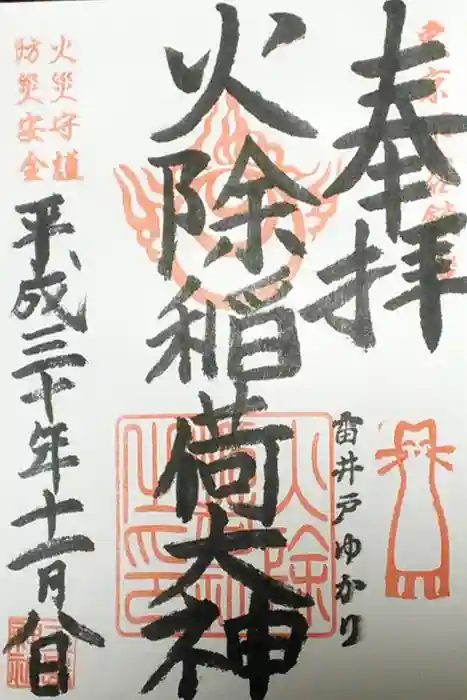 奉拝
火除稲荷大神
井戸ゆかり
火災守護
防災安全
平成三十年十一月八日
火除
之印